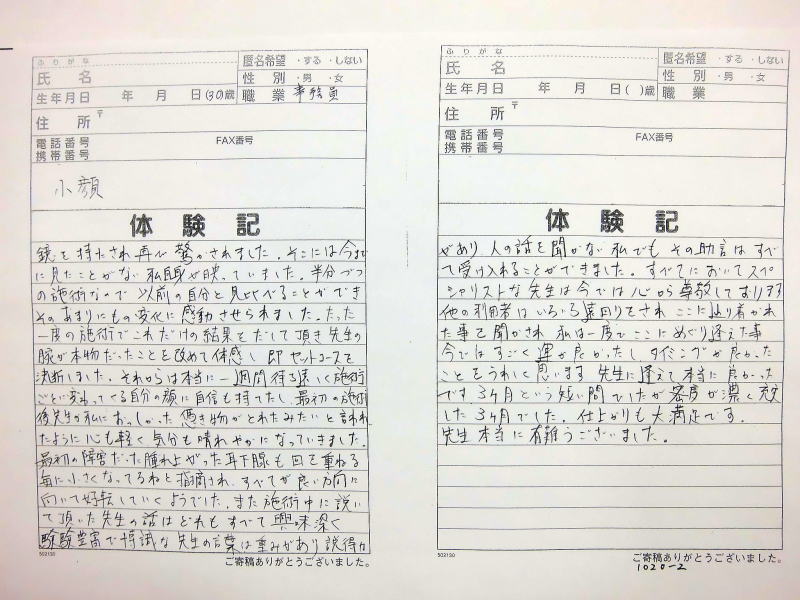 ふりがな
氏名
匿名希望 ・する ・しない
性別 ・男 ・女
生年月日 年 月 日(30)歳
職業 事務員
住所 〒
電話番号
携帯番号
FAX番号
小顔
体験記
鏡を持たされ再度驚かされました。そこには今まで
に見たことがない私自身が映っていました。半分づつ
の施術なので以前の自分と見比べることができ
そのあまりにもの変化に感動させられました。たった
一度の施術でこれだけの結果をだして頂き先生の
腕が本物だったことを改めて体感し即セットコースを
決断しました。それからは本当に一週間待ち遠しく施術
ごと変わってくる自分の顔に自信も持てたし、最初の施術
後先生が私におっしゃった憑き物がとれたみたいと言われ
たように心も軽く気分も晴れやかになっていきました。
最初の障害だった腫れ上がった耳下腺も回を重ねる
毎に小さくなってるねと指摘され、すべてが良い方向に
向いて好転していくようでした。また施術中に説い
て頂いた先生の話はどれもすべて興味深く
経験豊富で博識な先生の言葉は重みがあり説得力
502130
ご寄稿ありがとうございました。
ふりがな
氏名
匿名希望 ・する ・しない
性別 ・男 ・女
生年月日 年 月 日( )歳
職業
住所 〒
電話番号
携帯番号
FAX番号
体験記
があり人の話を聞かない私でもその助言はすべ
て受け入れることができました。すべてにおいてスペ
シャリストな先生は今では心から尊敬しております
他の利用者はいろいろ遠回りをされここに辿り着かれ
た事を聞かされ私は一度でここにめぐり逢えた事
今ではすごく運が良かったしタイミングが良かった
ことをうれしく思います 先生に逢えて本当に良かった
です。3ヶ月という短い間でしたが密度が濃く充実
した3ヶ月でした。仕上がりも大満足です。
先生本当に有難うございました。
502130
ご寄稿ありがとうございました。
1020-2